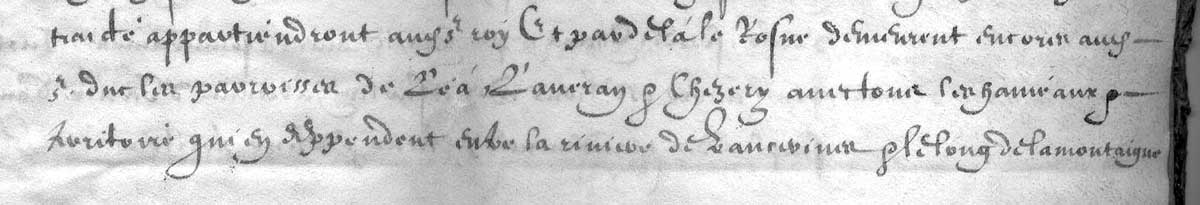 traicté appartiendront audit Sr roy Et par dela le Rosne demeurent encores audit
Sr. duc les parroisses de Lea Lancran & Chezery avec tous les hameaux &
territoire qui en deppendent entre la riviere de Vaucerine & le long de la montaigne